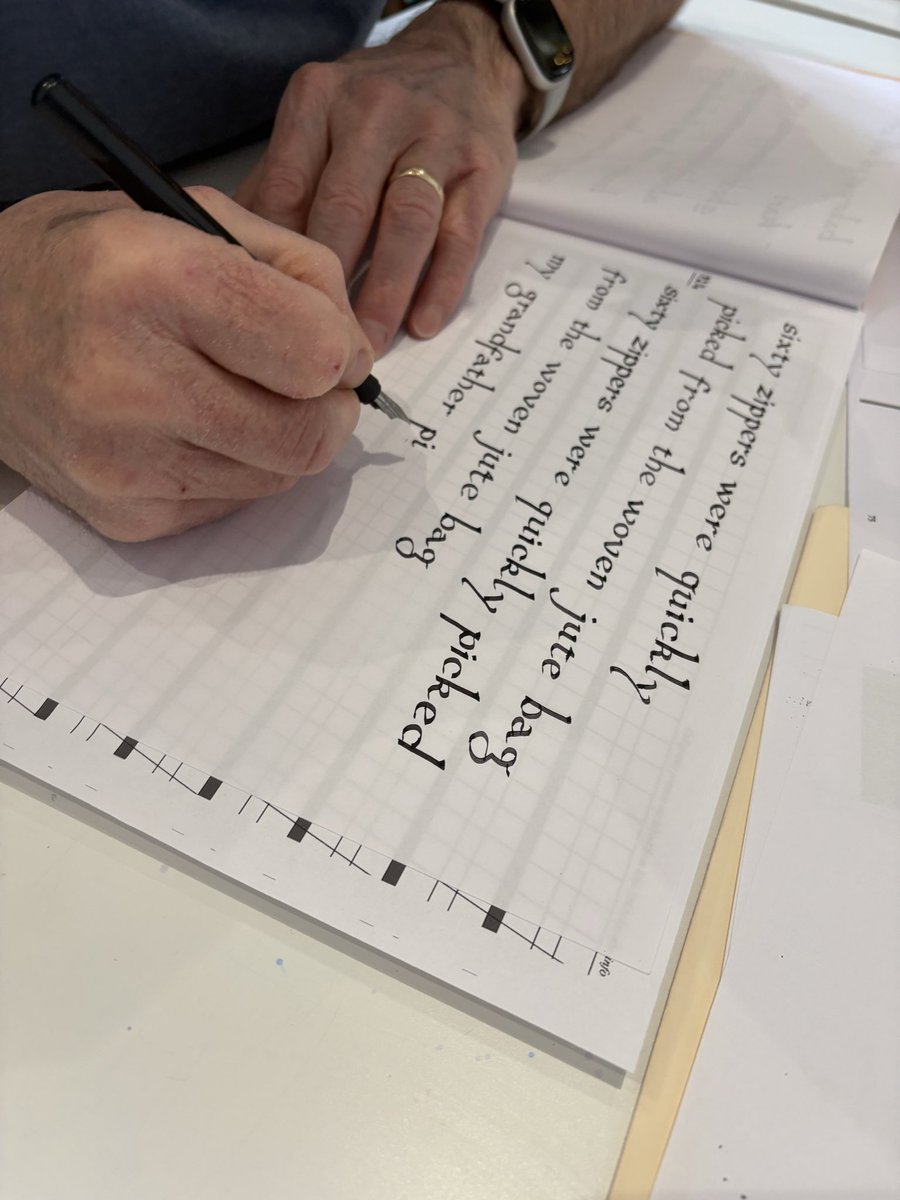 sixty zippers were quickly
picked from the woven jute bag
sixty zippers were quickly picked
from the woven jute bag
my grandfather pi
info